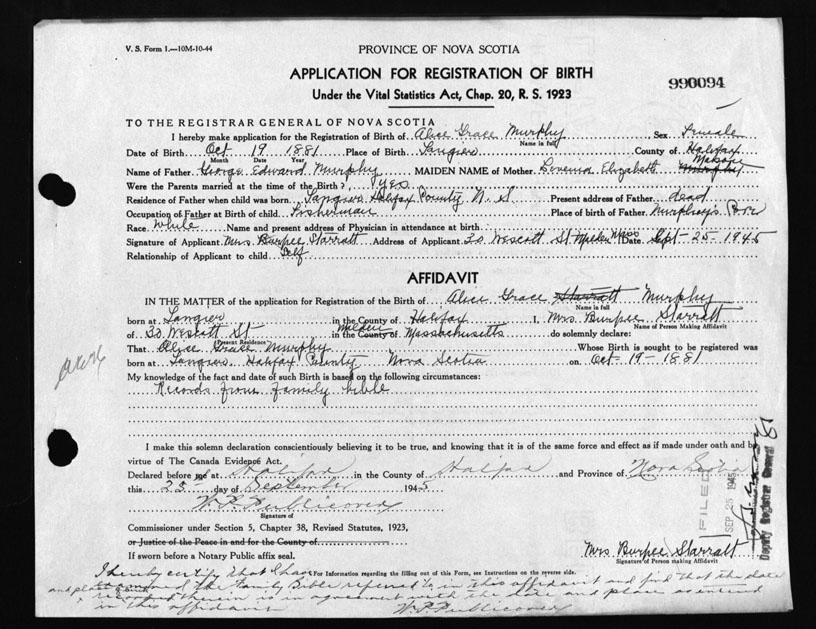 V. S. Form 1.—10M-10-44
PROVINCE OF NOVA SCOTIA
APPLICATION FOR REGISTRATION OF BIRTH
990094
Under the Vital Statistics Act, Chap. 20, R. S. 1923
TO THE REGISTRAR GENERAL OF NOVA SCOTIA
I hereby make application for the Registration of Birth of Alice Grace Murphy Sex Female
Name in full
Date of Birth Oct 19 1881 Place of Birth Tangier County of Halifax
Month Date Year
Mason
Name of Father George Edward Murphy MAIDEN NAME of Mother Elizabeth Murphy
Were the Parents married at the time of the Birth? yes
Residence of Father when child was born Tangier Halifax County N. S Present address of Father dead
Occupation of Father at Birth of child Fisherman Place of birth of Father Murphy's Cove
Race White Name and present address of Physician in attendance at birth
Signature of Applicant Mrs Burpee Starratt Address of Applicant 30 Wescott St Malden Mass Date Sept-25-1945
Relationship of Applicant to child Self
AFFIDAVIT
IN THE MATTER of the application for Registration of the Birth of Alice Grace Starratt Murphy
Name in full
born at Tangier in the County of Halifax I, Mrs Burpee Starratt
Name of Person Making Affidavit
of 30 Wescott St in the County of Malden Massachusetts do solemnly declare:
(Present Residence)
That Alice Grace Murphy Whose Birth is sought to be registered was
born at Tangier Halifax County Nova Scotia on Oct-19-1881
My knowledge of the fact and date of such Birth is based on the following circumstances:
Records from family bible
I make this solemn declaration conscientiously believing it to be true, and knowing that it is of the same force and effect as if made under oath and by
virtue of The Canada Evidence Act.
Declared before me at Halifax in the County of Halifax and Province of Nova Scotia
this 25 day of September 1945
W. P. Publicover
Signature of
Commissioner under Section 5, Chapter 38, Revised Statutes, 1923,
or Justice of the Peace in and for the County of
If sworn before a Notary Public affix seal.
FILED
SEP 25 1945
Deputy Registrar General
81
Mrs Burpee Starratt
Signature of Person making Affidavit
For Information regarding the filling out of this Form, see Instructions on the reverse side.
I hereby certify that I have
the Family Bible referred to in this affidavit and find that the date
and place
recorded therein is in agreement with the date and place as entered
in this affidavit W. P. Publicover